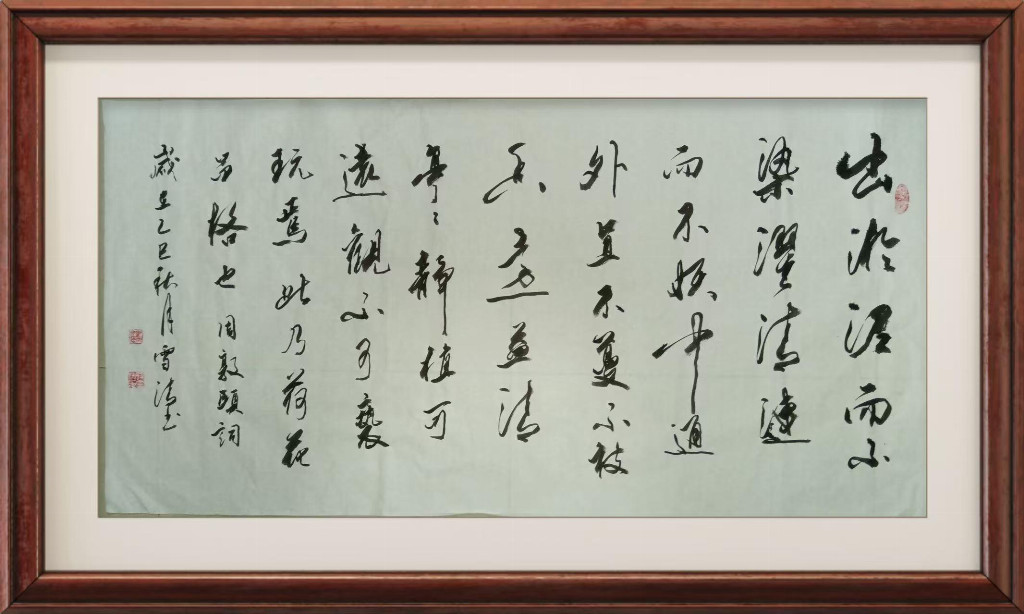 出淤泥而不
染濯清漣
而不妖中通
外直不蔓不枝
香遠益清
亭々靜植可
遠觀不可褻
玩焉此乃荷花
品格也周敦頤詞
歲在乙巳秋月雪清书